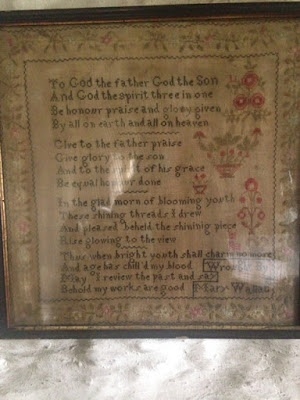 To God the father God the Son
And God the spirit three in one
Be honour praise and glory given
By all on earth and all on heaven
Give to the father praise
Give glory to the son
And to the spirit of his grace
Be equal honour done
In the glad morn of blooming youth
These shining threads I drew
And pleased beheld the shining piece
Rise glowing to the view
Thus when bright youth shall charm no more
And age has chill'd my blood
May I review the past and say
Behold my works are good
Mary